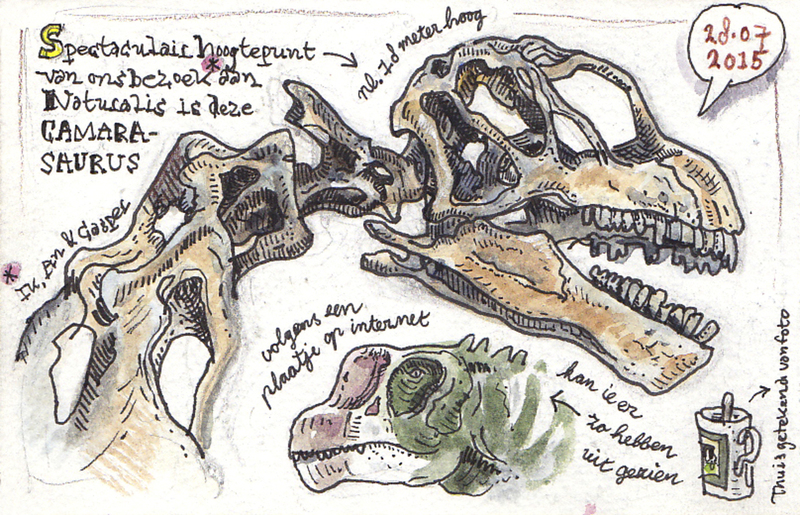 Spectaculair hoogtepunt
van ons bezoek * aan
Naturalis is deze
CAMARA-
SAURUS
nl. 7,5 meter hoog
28.07
2015
* Ik, Ann & Casper
volgens een
plaatje op internet
kan ie er
zo hebben
uit gezien
Thuis getekend van foto